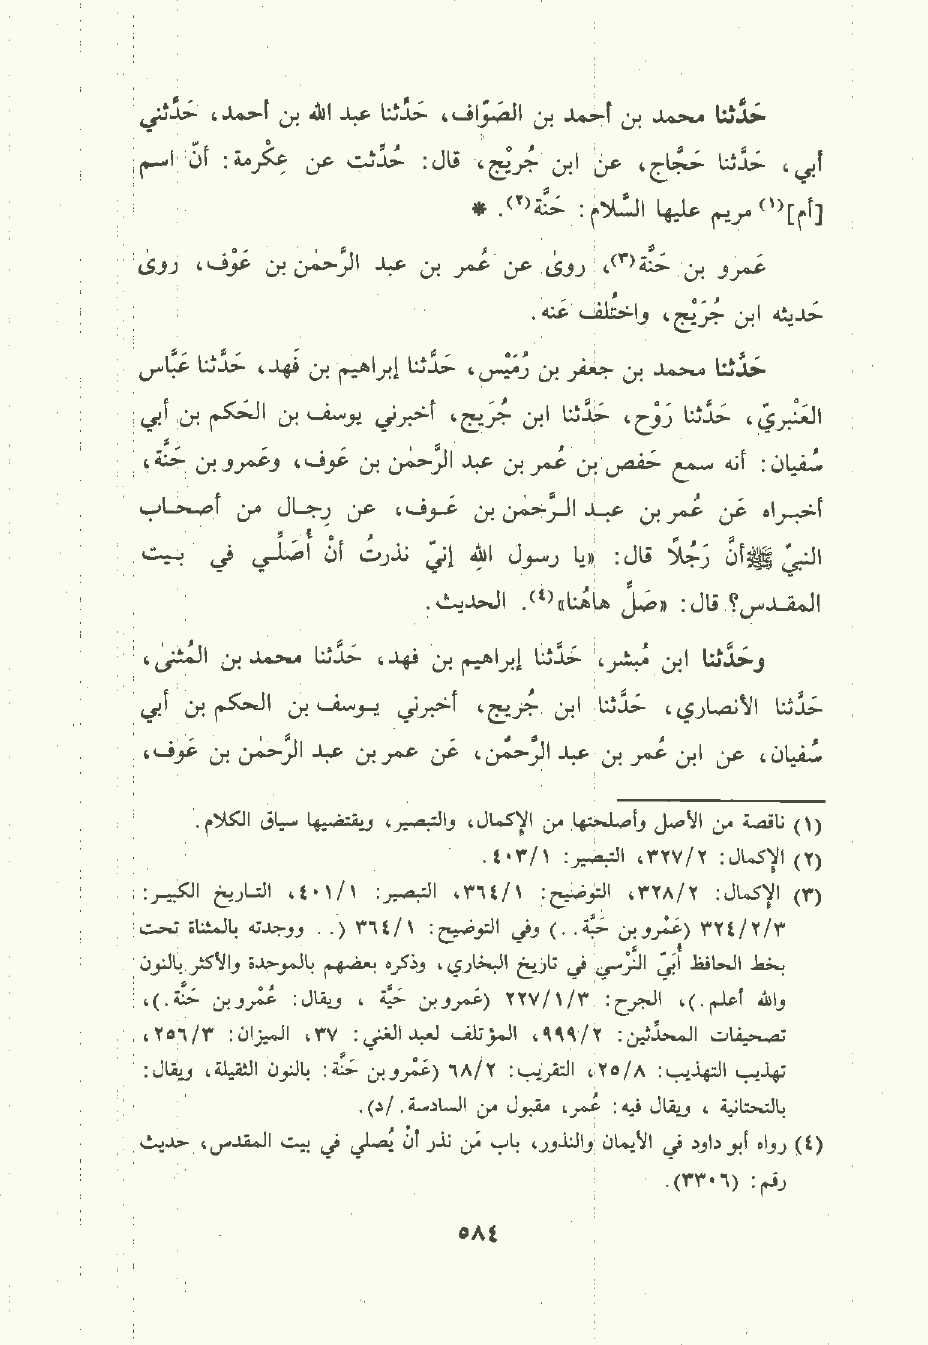 حَدَّثنا محمد بن أحمد بن الصَوّاف، حَدَّثنا عبد الله بن أحمد، حَدَّثني
أبي، حَدَّثنا حَجَّاج، عن ابن جُريْج، قال: حُدِّثت عن عِكْرمة: أنّ اسم
[أم](١) مريم عليها السَّلام: حَنَّة(٢). *
عَمرو بن حَنَّة(٣)، روىٰ عن عُمر بن عبد الرَّحمٰن بن عَوْف، روىٰ
حَديثه ابن جُرَيْج، واختُلف عَنه.
حَدَّثنا محمد بن جعفر بن رُمَيْس، حَدَّثنا إبراهيم بن فَهد، حَدَّثنا عَبَّاس
العَنْبريّ، حَدَّثنا رَوْح، حَدَّثنا ابن جُرَيج، أخبرني يوسف بن الحَكم بن أبي
سُفيان: أنه سمع حَفص بن عُمر بن عبد الرَّحمٰن بن عَوف، وعَمرو بن حَنَّة،
أخبراه عَن عُمر بن عبد الرَّحمٰن بن عَوف، عن رِجال من أصحاب
النبيّ ﷺ أنَّ رَجُلاً قال: «يا رسول اللهِ إنيّ نذرتُ أنْ أُصَلِّي في بيت
المقدس؟ قال: «صَلِّ هاهُنا»(٤). الحديث.
وحَدَّثنا ابن مُبشر، حَدَّثنا إبراهيم بن فهد، حَدَّثنا محمد بن المُثنىٰ،
حَدَّثنا الأنصاري، حَدَّثنا ابن جُريج، أخبرني يوسف بن الحكم بن أبي
سُفيان، عن ابن عُمر بن عبد الرَّحمٰن، عَن عمر بن عبد الرَّحمٰن بن عَوف،
(١) ناقصة من الأصل وأصلحتها من الإكمال، والتبصير، ويقتضيها سياق الكلام.
(٢) الإكمال: ٣٢٧/٢، التبصير: ٤٠٣/١.
(٣) الإكمال: ٣٢٨/٢، التوضيح: ٣٦٤/١، التبصير: ٤٠١/١، التاريخ الكبير:
٣٢٤/٢/٣ (عَمْرو بن حَبَّة. .) وفي التوضيح: ٣٦٤/١ (. . ووجدته بالمثناة تحت
بخط الحافظ أُبَيّ النَّرْسي في تاريخ البخاري، وذكره بعضهم بالموحدة والأكثر بالنون
والله أعلم.)، الجرح: ٢٢٧/١/٣ (عَمرو بن حَيَّة ، ويقال: عُمْرو بن حَنَّة.)،
تصحيفات المحدِّثين: ٩٩٩/٢، المؤتلف لعبد الغني: ٣٧، الميزان: ٢٥٦/٣،
تهذيب التهذيب: ٢٥/٨، التقريب: ٦٨/٢ (عَمْرو بن حَنَّة: بالنون الثقيلة، ويقال:
بالتحتانية ، ويقال فيه: عُمر، مقبول من السادسة. /د).
(٤) رواه أبو داود في الأيمان والنذور، باب مَن نذر أنْ يُصلي في بيت المقدس، حديث
رقم: (٣٣٠٦).
٥٨٤